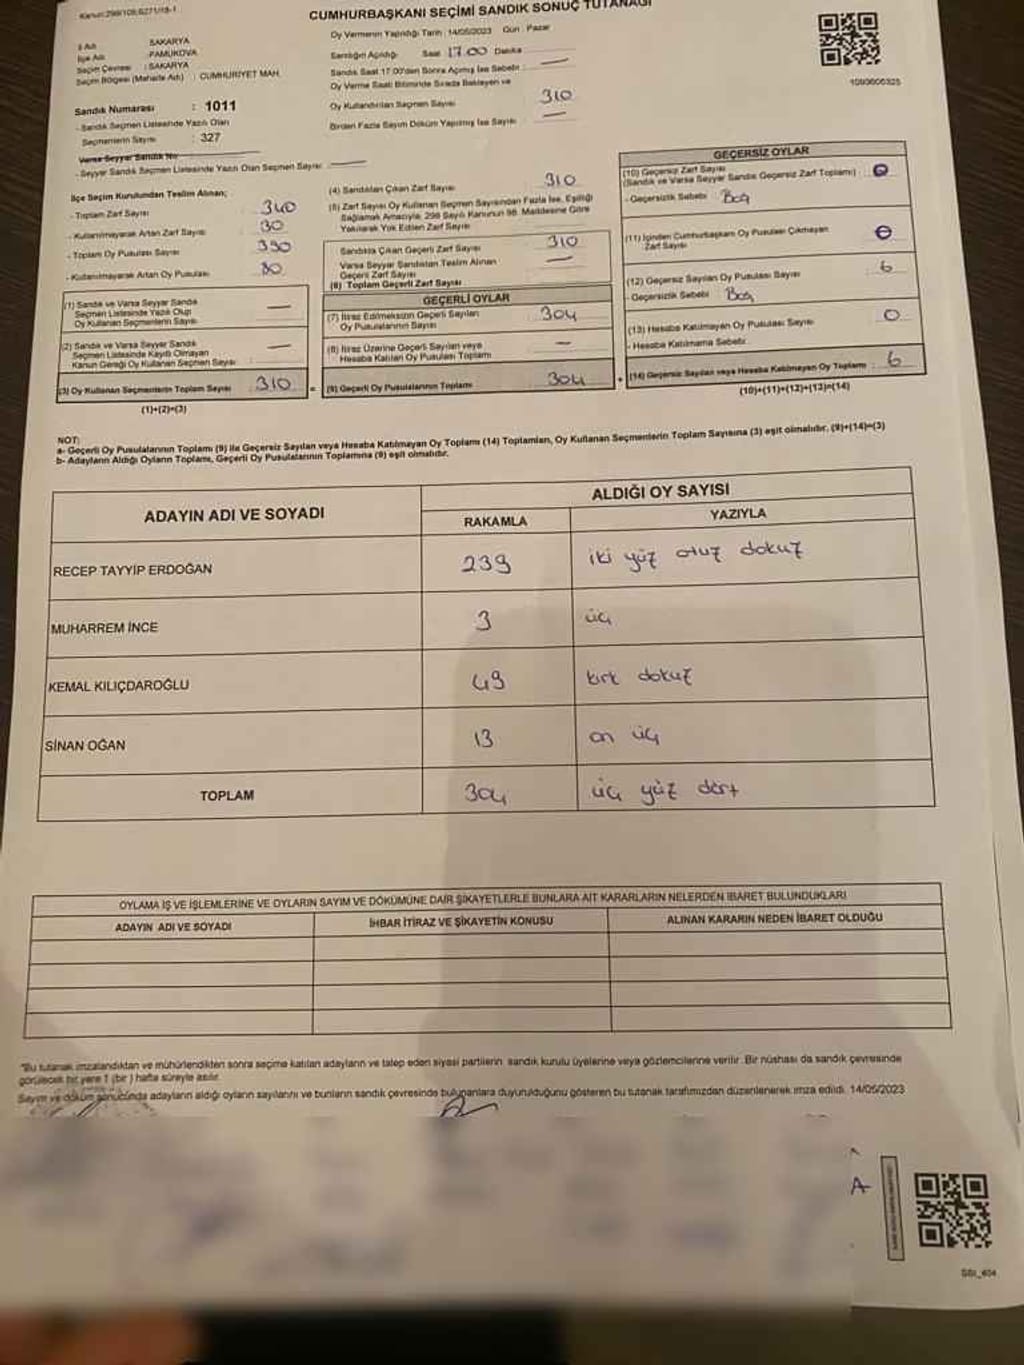 Kanun:298/105;6271/18-1
CUMHURBAŞKANI SEÇİMİ SANDIK SONUÇ TUTANAĞI
İl Adı : SAKARYA
İlçe Adı : PAMUKOVA
Seçim Çevresi : SAKARYA
Seçim Bölgesi (Mahalle Adı) : CUMHURİYET MAH.
Sandık Numarası : 1011
- Sandık Seçmen Listesinde Yazılı Olan
Seçmenlerin Sayısı : 327
Varsa Seyyar Sandık No
- Seyyar Sandık Seçmen Listesinde Yazılı Olan Seçmen Sayısı :
Oy Vermenin Yapıldığı Tarih : 14/05/2023 Gün : Pazar
Sandığın Açıldığı Saat 17.00 Dakika
Sandık Saat 17.00'den Sonra Açılmış İse Sebebi :
Oy Verme Saati Bitiminde Sırada Bekleyen ve
Oy Kullandırılan Seçmen Sayısı 310
Birden Fazla Sayım Döküm Yapılmış İse Sayısı : —
1090606325
İlçe Seçim Kurulundan Teslim Alınan;
- Toplam Zarf Sayısı 340
- Kullanılmayarak Artan Zarf Sayısı : 30
- Toplam Oy Pusulası Sayısı 390
- Kullanılmayarak Artan Oy Pusulası 80
(1) Sandık ve Varsa Seyyar Sandık
Seçmen Listesinde Yazılı Olup
Oy Kullanan Seçmenlerin Sayısı —
(2) Sandık ve Varsa Seyyar Sandık
Seçmen Listesinde Kayıtlı Olmayan
Kanun Gereği Oy Kullanan Seçmen Sayısı : —
(3) Oy Kullanan Seçmenlerin Toplam Sayısı : 310 =
(1)+(2)=(3)
(4) Sandıktan Çıkan Zarf Sayısı 310
(5) Zarf Sayısı Oy Kullanan Seçmen Sayısından Fazla İse, Eşitliği
Sağlamak Amacıyla, 298 Sayılı Kanunun 98. Maddesine Göre
Yakılarak Yok Edilen Zarf Sayısı
Sandıkta Çıkan Geçerli Zarf Sayısı 310
Varsa Seyyar Sandıktan Teslim Alınan
Geçerli Zarf Sayısı —
(6) Toplam Geçerli Zarf Sayısı
GEÇERLİ OYLAR
(7) İtiraz Edilmeksizin Geçerli Sayılan
Oy Pusulalarının Sayısı 304
(8) İtiraz Üzerine Geçerli Sayılan veya
Hesaba Katılan Oy Pusulası Toplamı —
(9) Geçerli Oy Pusulalarının Toplamı 304 +
GEÇERSİZ OYLAR
(10) Geçersiz Zarf Sayısı
(Sandık ve Varsa Seyyar Sandık Geçersiz Zarf Toplamı) :
- Geçersizlik Sebebi Boş
(11) İçinden Cumhurbaşkanı Oy Pusulası Çıkmayan
Zarf Sayısı
(12) Geçersiz Sayılan Oy Pusulası Sayısı : 6
- Geçersizlik Sebebi Boş
(13) Hesaba Katılmayan Oy Pusulası Sayısı : 0
- Hesaba Katılmama Sebebi
(14) Geçersiz Sayılan veya Hesaba Katılmayan Oy Toplamı : 6
(10)+(11)+(12)+(13)=(14)
NOT:
a- Geçerli Oy Pusulalarının Toplamı (9) ile Geçersiz Sayılan veya Hesaba Katılmayan Oy Toplamı (14) Toplamları, Oy Kullanan Seçmenlerin Toplam Sayısına (3) eşit olmalıdır. (9)+(14)=(3)
b- Adayların Aldığı Oyların Toplamı, Geçerli Oy Pusulalarının Toplamına (9) eşit olmalıdır.
ADAYIN ADI VE SOYADI
ALDIĞI OY SAYISI
RAKAMLA YAZIYLA
RECEP TAYYİP ERDOĞAN 239 iki yüz otuz dokuz
MUHARREM İNCE 3 üç
KEMAL KILIÇDAROĞLU 49 kırk dokuz
SİNAN OĞAN 13 on üç
TOPLAM 304 üç yüz dört
OYLAMA İŞ VE İŞLEMLERİNE VE OYLARIN SAYIM VE DÖKÜMÜNE DAİR ŞİKAYETLERLE BUNLARA AİT KARARLARIN NELERDEN İBARET BULUNDUKLARI
ADAYIN ADI VE SOYADI İHBAR İTİRAZ VE ŞİKAYETİN KONUSU ALINAN KARARIN NEDEN İBARET OLDUĞU
"Bu tutanak imzalandıktan ve mühürlendikten sonra seçime katılan adayların ve talep eden siyasi partilerin sandık kurulu üyelerine veya gözlemcilerine verilir. Bir nüshası da sandık çevresinde
görülecek bir yere 1 (bir) hafta süreyle asılır.
Sayım ve döküm sonucunda adayların aldığı oyların sayılarını ve bunların sandık çevresinde bulunanlara duyurulduğunu gösteren bu tutanak tarafımızdan düzenlenerek imza edildi. 14/05/2023
A